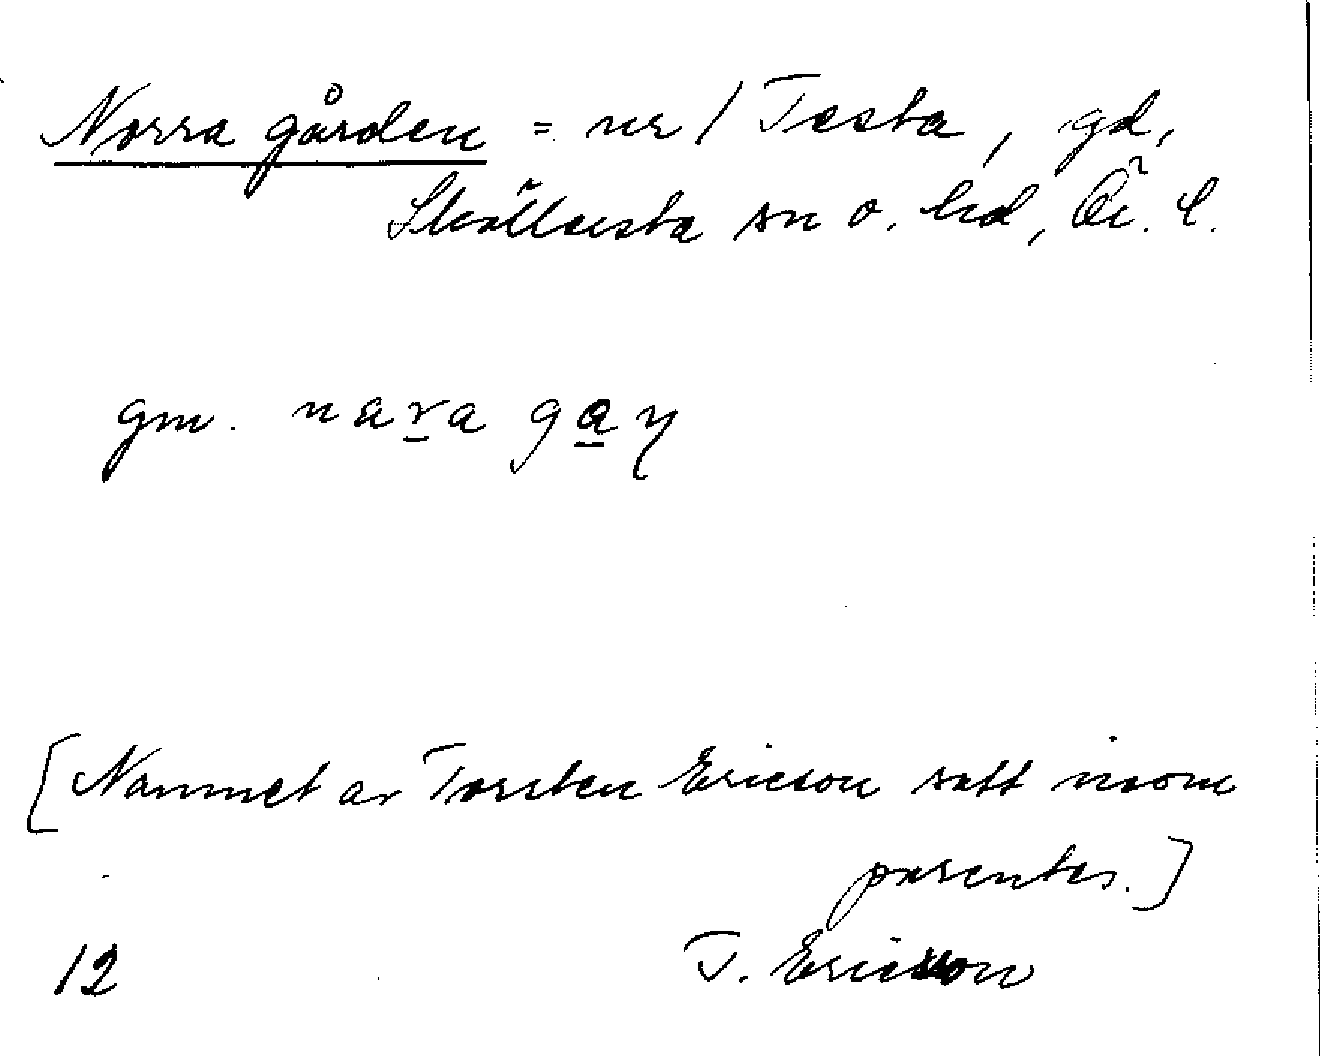 Norra gården = nr 1 Testa, gd,
Skällvista sn o. hd, Ög. l.
gm. nara gaŋ
[Namnet av Torsten Ericson satt inom
parentes.]
12 T. Ericsson